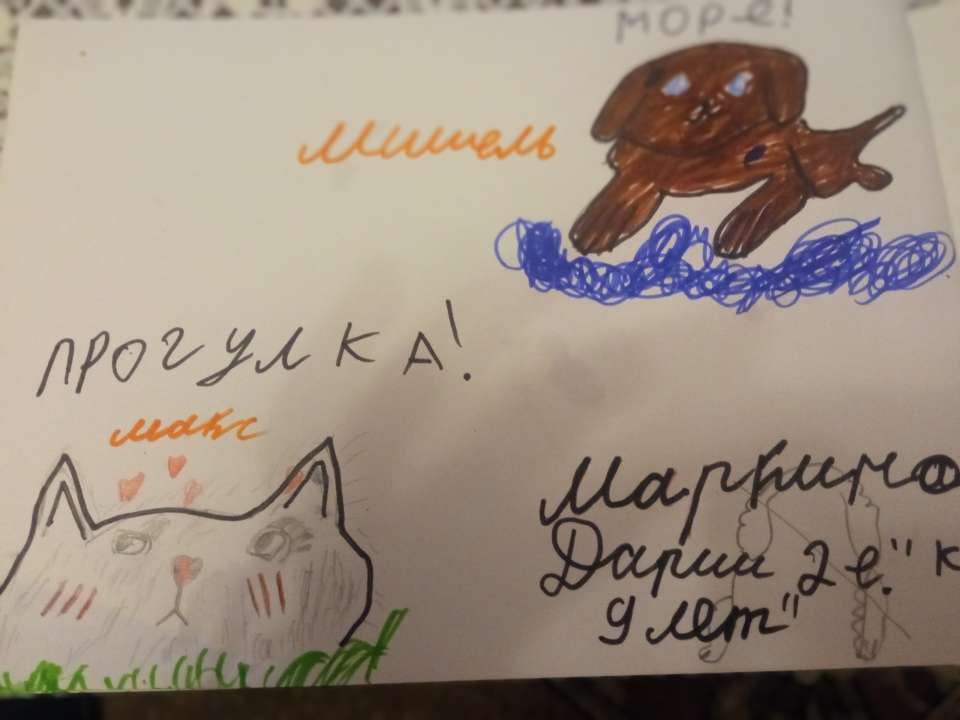 МОРЕ!
Мишель
ПРОГУЛКА!
макс
Дарии 2 е." к
9 лет"